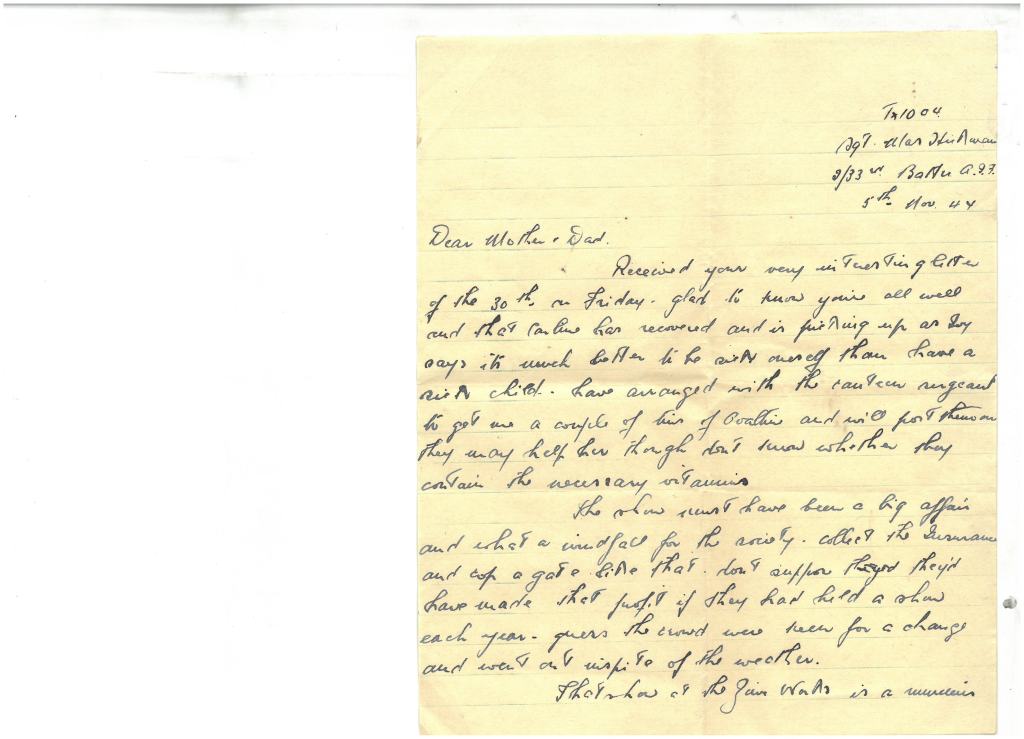 Tx1004
Sgt. Max Hickman
2/33rd Battn A.I.F.
5th Nov. 44
Dear Mother & Dad.
Received your very interesting letter
of the 30th on Friday. glad to know you're all well
and that has recovered and is picking up as
says its much better to be sick oneself than have a
sick child. have arranged with the canteen sergeant
to get me a couple of tins of Ovaltine and will post them on
they may help her though don't know whether they
contain the necessary vitamins
The show must have been a big affair
and what a windfall for the society. collect the Insurance
and cop a gate like that. don't suppose they'd
have made that profit if they had held a show
each year. guess the crowd were keen for a change
and went out inspite of the weather.
That show at the Works is a